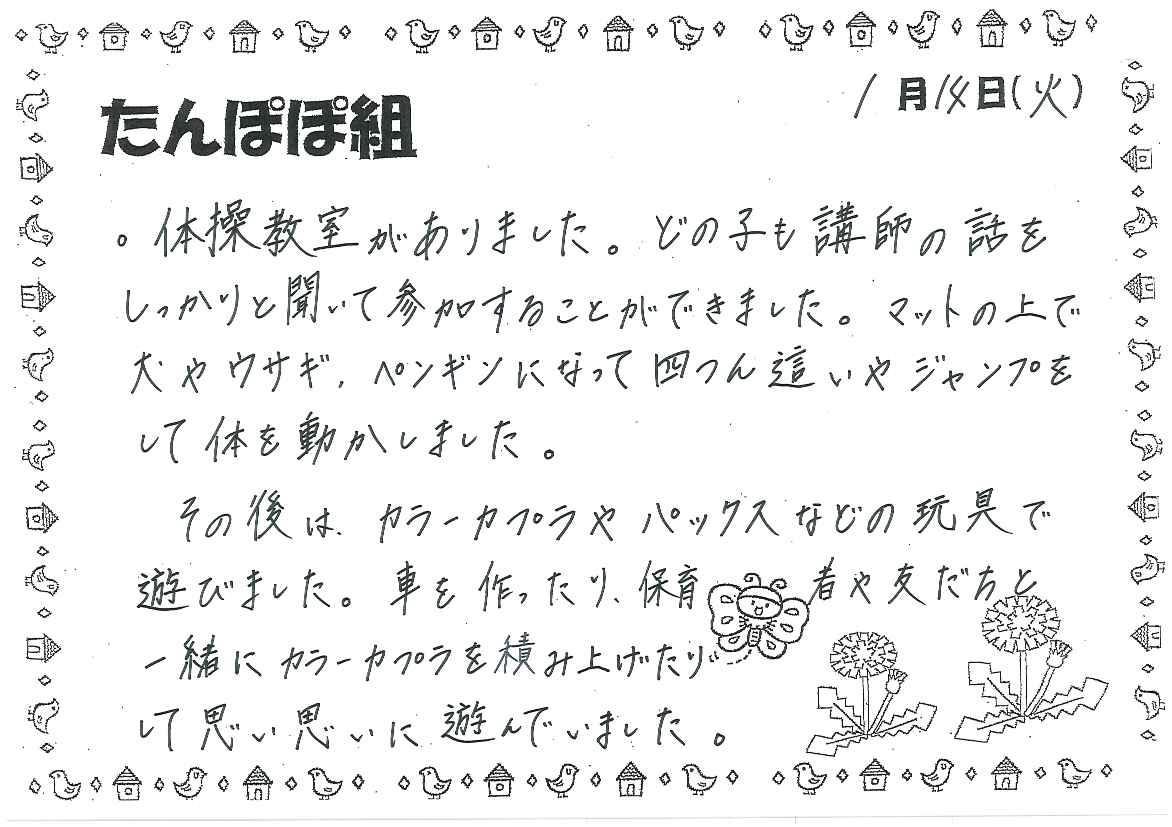 たんぽぽ組
1月14日(火)
。体操教室がありました。どの子も講師の話を
しっかりと聞いて参加することができました。マットの上で
犬やウサギ、ペンギンになって四つん這いやジャンプを
して体を動かしました。
その後は、カラーカプラやパックスなどの玩具で
遊びました。車を作ったり、保育者や友だちと
一緒にカラーカプラを積み上げたり
して思い思いに遊んでいました。